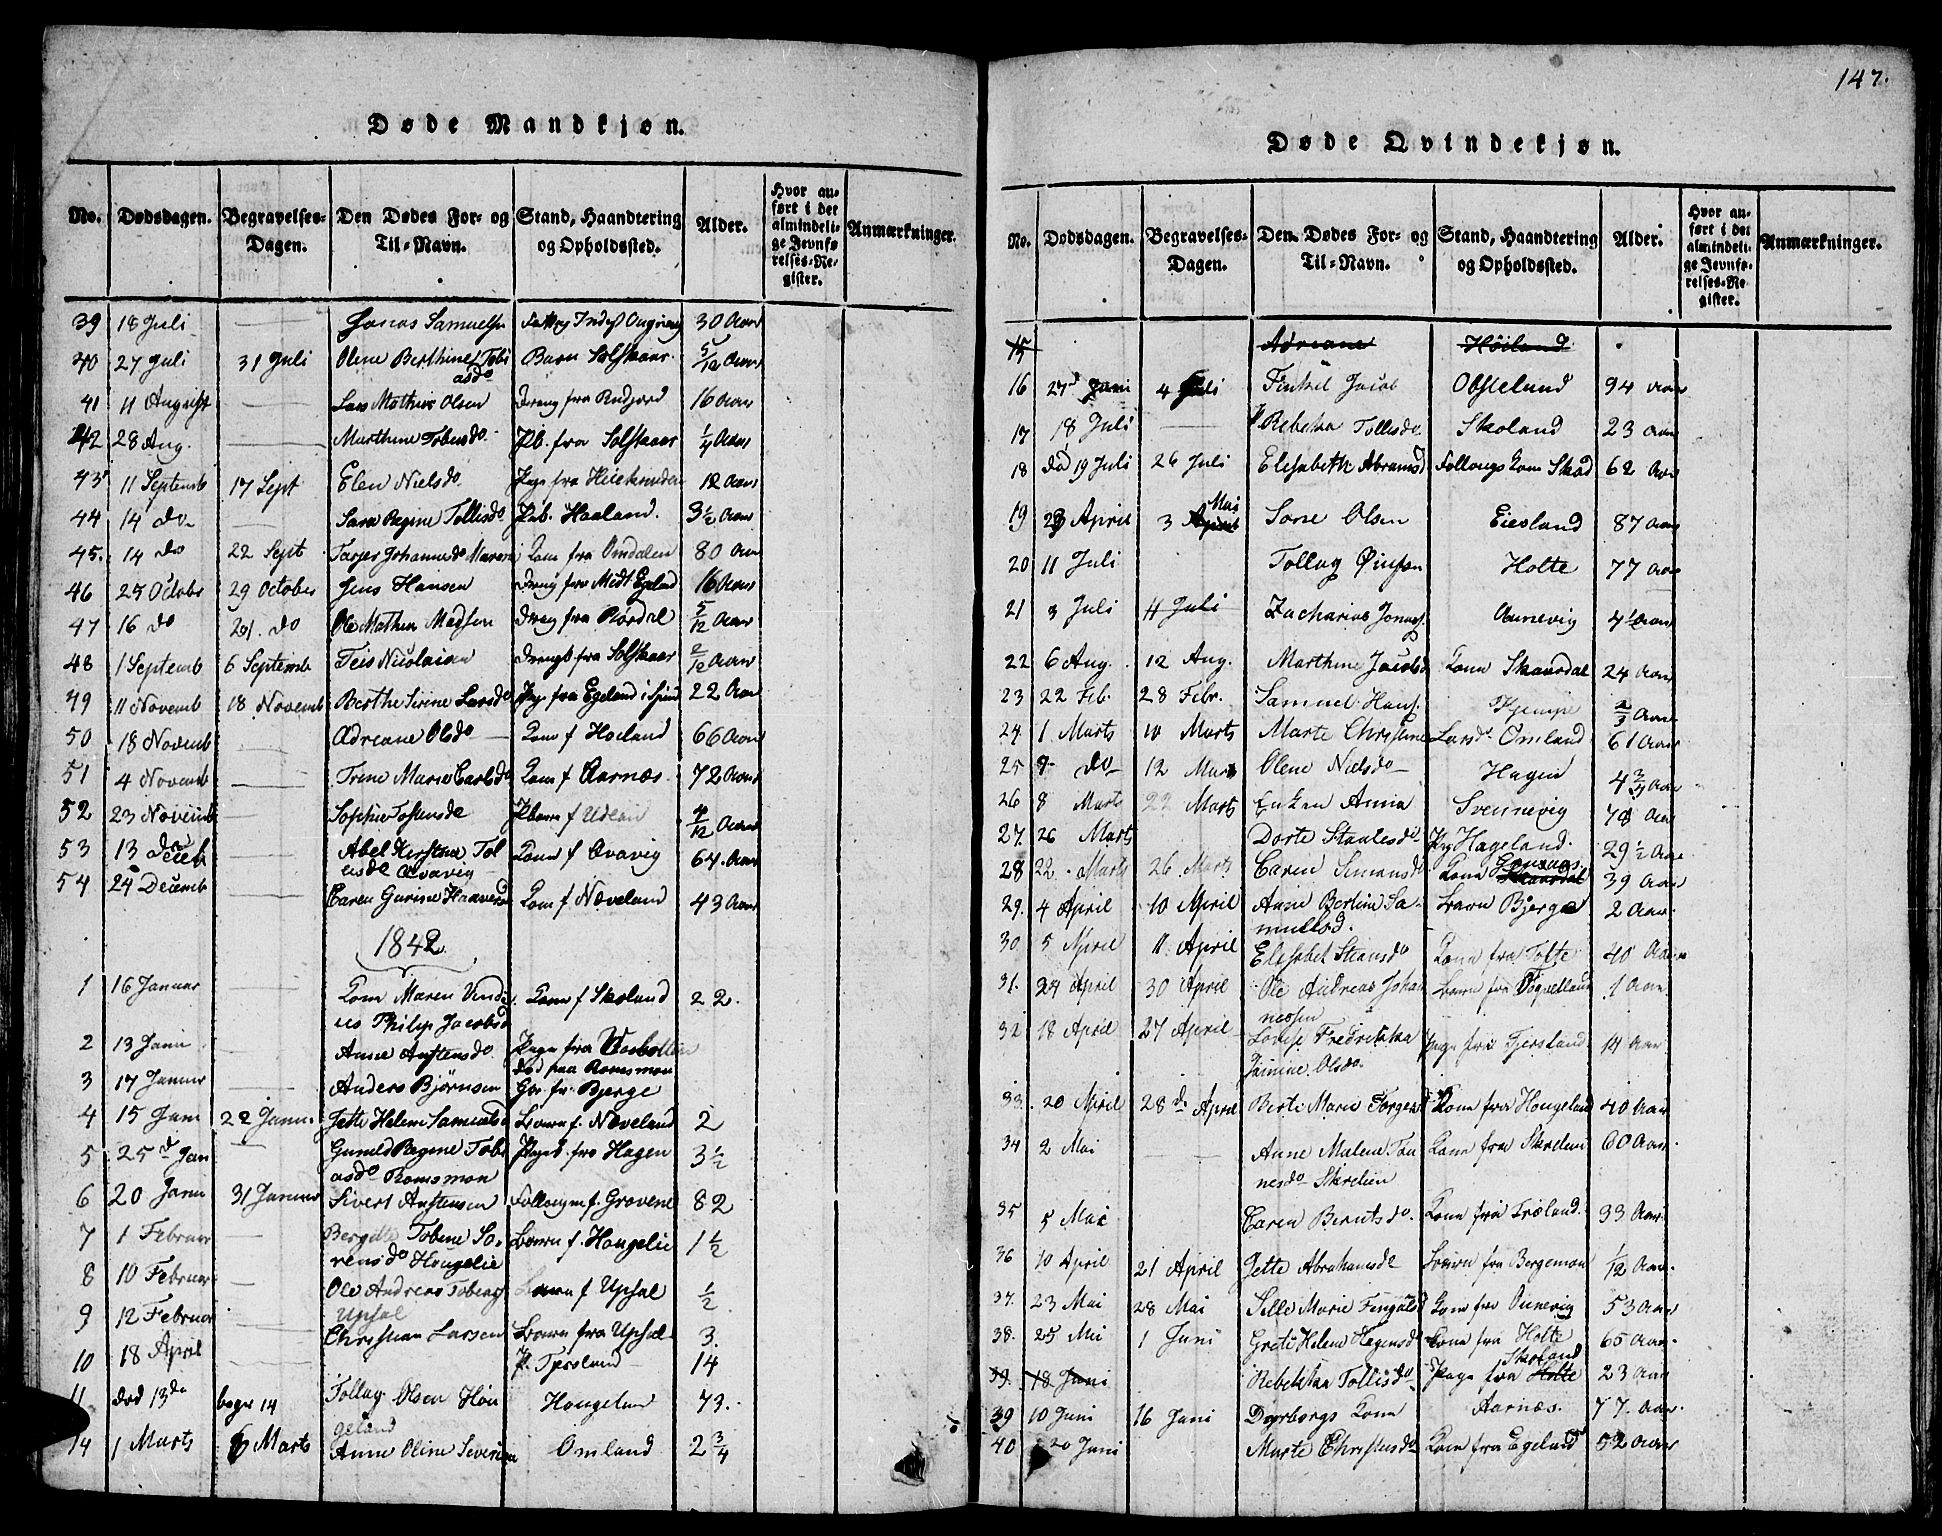 147.
Døde Mandkjøn.
No. Dødsdagen. Begravelses-Dagen. Den Dødes For- og Til-Navn. Stand, Haandtering og Opholdssted. Alder. Hvor anført i det almindelige Jevnførelses-Register. Anmærkninger.
39 18 Juli Jonas Samuelsn 30 Aar
40 27 Juli 31 Juli Olene Berthine Tobiasdo Barn Solskaar 5/12 Aar
41 11 August Lars Mathias Olsen Dreng fra 16 Aar
42 28 Aug. Marthine Tobiasdo Pb. fra Solskaar 1/4 Aar
43 11 Septemb 17 Sept Elen Nielsdo Pige fra 12 Aar
44 14 do Sara Regine Tollisdo Pb. Haaland. 3½ Aar
45. 14 do 22 Sept Tarjer Johannesdo Kone fra Omdalen 80 Aar
46 25 Octobr 29 October Jens Hansen Dreng fra Midt Egeland 16 Aar
47 16 do 21. do Ole Mathias Madsen Dreng fra Rørdal 5/12 Aar
48 1 Septemb 6 Septemb Teis Nicolaisen Drengb fra Solskaar 2/12 Aar
49 11 Novemb 18 Novemb Berthe Sirine Larsdo Pige fra Egeland i 22 Aar
50 18 Novemb Adriane Olsdo Kone f Høiland 66 Aar
51 4 Novemb Trine Marie Carlsdo Kone f Aarnæs 72 Aar
52 23 Novemb Sophie Pbarn f 4/12 Aar
53 13 Deceb Abel Kirstine Tollisdo Qvavig Kone f Qvavig 64. Aar
54 24 Decemb Caren Gurine Haavorsd Kone f Næveland 43 Aar
1842
1 16 Januar Kone Maren Philip Jacobsd Kone f Skoland 22.
2 13 Janu Anne Austensdo Pige fra
3 17 Januar Anders Bjørnsen død paa Romsmon Gbr. fr. Bjerge
4 15 Janu 22 Janu. Jette Helene Samuelsd Barn f. Neveland 2
5 25d Jan Gunild Regine Tobiasdo Romsmon Pigeb. fra Hagen 3½
6 20 Janu 31 Januar Sivert Austensen f. Grovene 82
7 1 Februar Bergitte Tobine Sørensdo Hougelie Barn f. Hougelie 1½
8 10 Februar Ole Andreas Tobias Upsal Barn f Upsal ½
9 12 Februar Christian Larsen Barn fra Upsal 3.
10 18 April P. Tjersland 14
11 død 13de begr 14 Tollag Olsen Hougeland Hougelan 73.
14 1 Marts 6 Marts Anne Oline Severin Omland 2¾
Døde Qvindekjøn.
No. Dødsdagen. Begravelses-Dagen. Den Dødes For- og Til-Navn. Stand, Haandtering og Opholdssted. Alder. Hvor anført i det almindelige Jevnførelses-Register. Anmærkninger.
15 Adriane Høiland
16 27d Juni 4 Juli Tinkel Jacob Obstelund 94 Aar
17 18 Juli Rebekka Tollisdo Skoland 23 Aar
18 død 19 Juli 26 Juli Elisabeth Abramsd Kone 62 Aar
19 23 April 3 Mai Sone Olsen Eiesland 87 Aar
20 11 Juli Tollag Holte 77 Aar
21 3 Juli 11 Juli Zacharias Jonass. Aunevig 4½ Aar
22 6 Aug. 12 Aug. Marthine Jacobsd Kone Skaardal 24 Aar
23 22 Feb. 28 Febr. Samuel Hans. 2/3 Aar
24 1. Marts 10 Marts Marte Christine Larsdo Omland 61 Aar
25 9 do 12 Marts Olene Nielsdo Hagen 4¾ Aar
26 8 Marts 22 Marts Enken Anna Svennevig 78 Aar
27. 26 Marts Dorte Staalesdo Pig Hageland. 29½ Aar
28 22. Marts 26 Marts Caren Simonsdo Kone Skaardal 39 Aar
29. 4 April 10 April Anne Bertine Samuelsd. Barn Bjerge 2 Aar.
30. 5 April 11. April Elisabet Steansdo Kone fra Tolte 40 Aar
31. 24 April 30 April Ole Andreas Johannessen Barn fra 1 Aar.
32 18 April 27 April Lovise Fredrikka Jamine Olsdo. Pige fra Tjersland 14 Aar
33. 20 April 28de April Berte Marie Torgersd Kone fra Hougeland 40 Aar
34 2 Mai Anne Malene Tønnesdo Skrelien Kone fra Skrelien 60 Aar
35 5 Mai Caren Berntsdo. Kone fra Træland. 33 Aar
36 10 April 21 April Jette Abrahamsdo Barn fra Bergemon 1/12 Aar.
37. 23 Mai 28 Mai Sille Marie Fengalsd Kone fra Aunevig 53 Aar
38. 25 Mai 1 Juni Grete Helene Aagensdo Kone fra Holte 65 Aar.
39. 18 Juni Rebekka Tollisdo Pige fra Holte Skoland 23 Aar
39 10 Juni 16 Juni Dorborgs Kone Aarnæs. 77. Aar.
40 20 Juni Marte Christensdo Kone fra Egeland 52 Aar